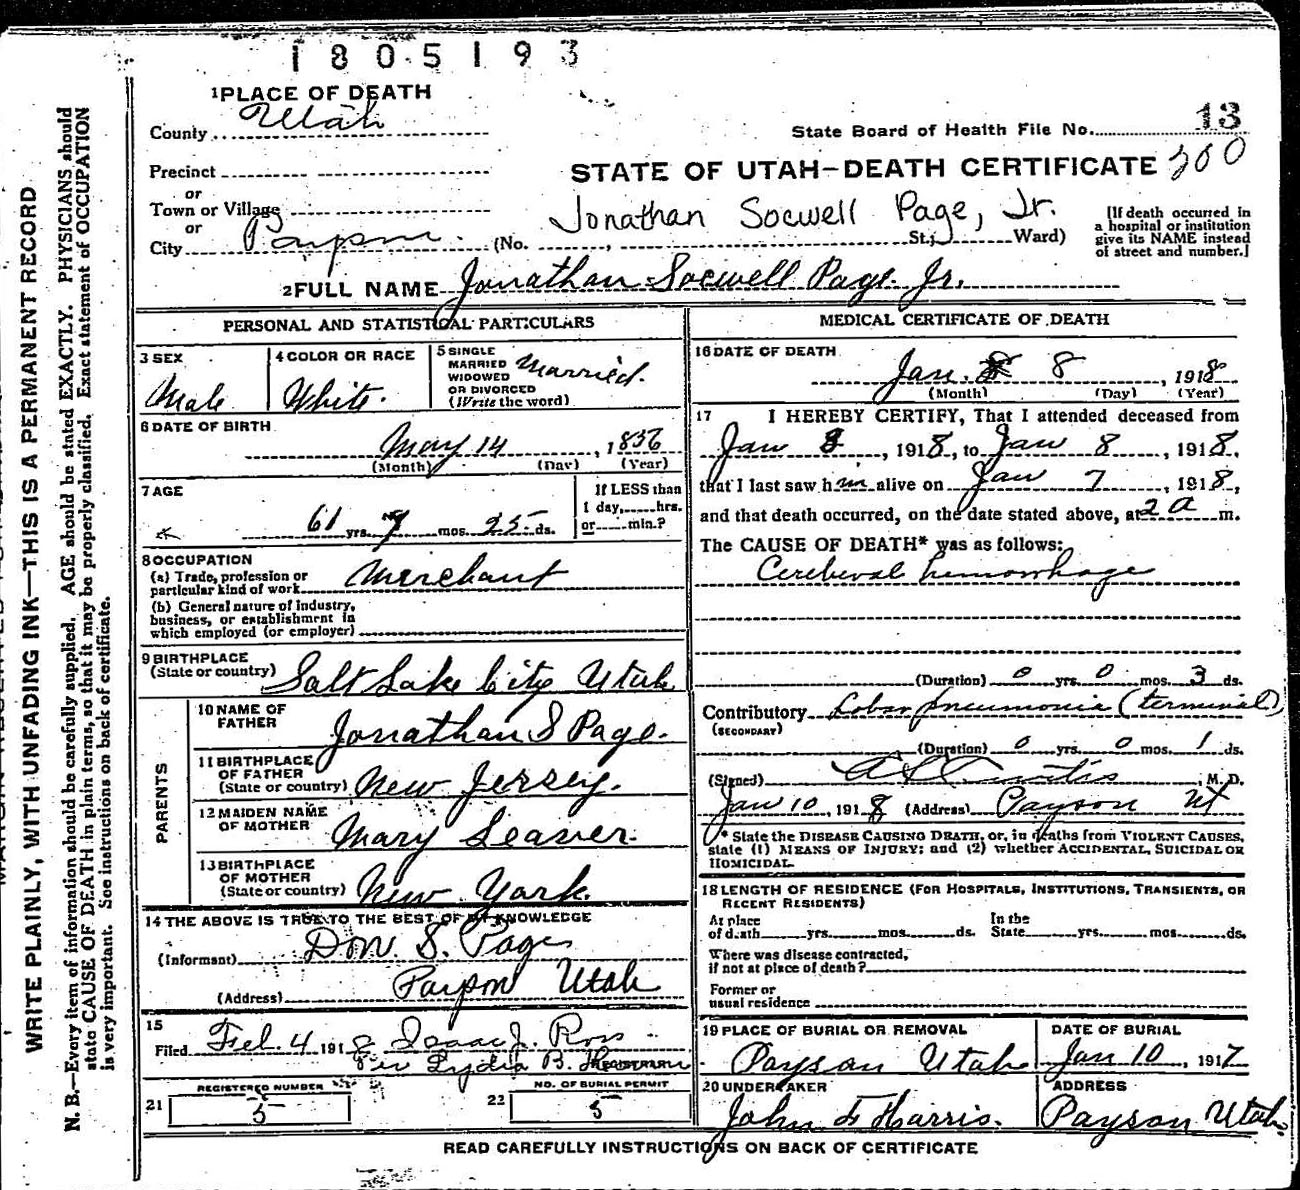 1805193
1 PLACE OF DEATH
County Utah
State Board of Health File No. 13
Precinct
STATE OF UTAH—DEATH CERTIFICATE 200
or
Town or Village
Jonathan Socwell Page, Jr.
or
City Payson (No. , St.; Ward)
[If death occurred in a hospital or institution give its NAME instead of street and number.]
2 FULL NAME Jonathan Socwell Page Jr.
PERSONAL AND STATISTICAL PARTICULARS
3 SEX
Male
4 COLOR OR RACE
White.
5 SINGLE
MARRIED
WIDOWED
OR DIVORCED
(Write the word)
Married.
6 DATE OF BIRTH
May 14, 1856
(Month) (Day) (Year)
7 AGE
61 yrs. 7 mos. 25 ds.
If LESS than
1 day, hrs.
or min.?
8 OCCUPATION
(a) Trade, profession or
particular kind of work Merchant
(b) General nature of Industry,
business, or establishment in
which employed (or employer)
9 BIRTHPLACE
(State or country) Salt Lake City Utah
PARENTS
10 NAME OF
FATHER Jonathan S Page.
11 BIRTHPLACE
OF FATHER
(State or country) New Jersey.
12 MAIDEN NAME
OF MOTHER Mary Leaver.
13 BIRTHPLACE
OF MOTHER
(State or country) New York.
14 THE ABOVE IS TRUE TO THE BEST OF MY KNOWLEDGE
(Informant) Don. S. Page
(Address) Payson Utah
15
Filed Feb. 4 1918 Isaac J. Ross
Per Lydia B. REGISTRAR
REGISTERED NUMBER
21 5
NO. OF BURIAL PERMIT
22 5
MEDICAL CERTIFICATE OF DEATH
16 DATE OF DEATH
Jan. 8, 1918
(Month) (Day) (Year)
17 I HEREBY CERTIFY, That I attended deceased from
Jan 8, 1918, to Jan 8, 1918,
that I last saw him alive on Jan 7, 1918,
and that death occurred, on the date stated above, at 2 a m.
The CAUSE OF DEATH* was as follows:
Cerebral hemorrhage
(Duration) 0 yrs. 0 mos. 3 ds.
Contributory Lobar pneumonia (terminal)
(SECONDARY)
(Duration) 0 yrs. 0 mos. 1 ds.
(Signed) A L Curtis, M. D.
Jan 10, 1918 (Address) Payson Ut
* State the DISEASE CAUSING DEATH, or, in deaths from VIOLENT CAUSES,
state (1) MEANS OF INJURY; and (2) whether ACCIDENTAL, SUICIDAL OR
HOMICIDAL.
18 LENGTH OF RESIDENCE (FOR HOSPITALS, INSTITUTIONS, TRANSIENTS, OR
RECENT RESIDENTS)
At place In the
of death yrs. mos. ds. State yrs. mos. ds.
Where was disease contracted,
if not at place of death?
Former or
usual residence
19 PLACE OF BURIAL OR REMOVAL
Payson Utah
DATE OF BURIAL
Jan 10, 1917
20 UNDERTAKER
John F Harris.
ADDRESS
Payson Utah.
READ CAREFULLY INSTRUCTIONS ON BACK OF CERTIFICATE
WRITE PLAINLY, WITH UNFADING INK—THIS IS A PERMANENT RECORD
N. B.—Every item of information should be carefully supplied. AGE should be stated EXACTLY. PHYSICIANS should
state CAUSE OF DEATH in plain terms, so that it may be properly classified. Exact statement of OCCUPATION
is very important. See instructions on back of certificate.